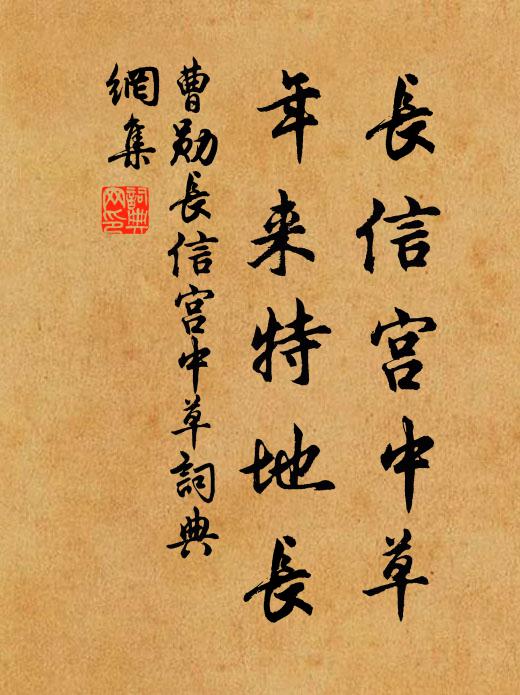 長信宫中草
年来特地長
曹勛長信宫中草詞典
網集
詞典
网印